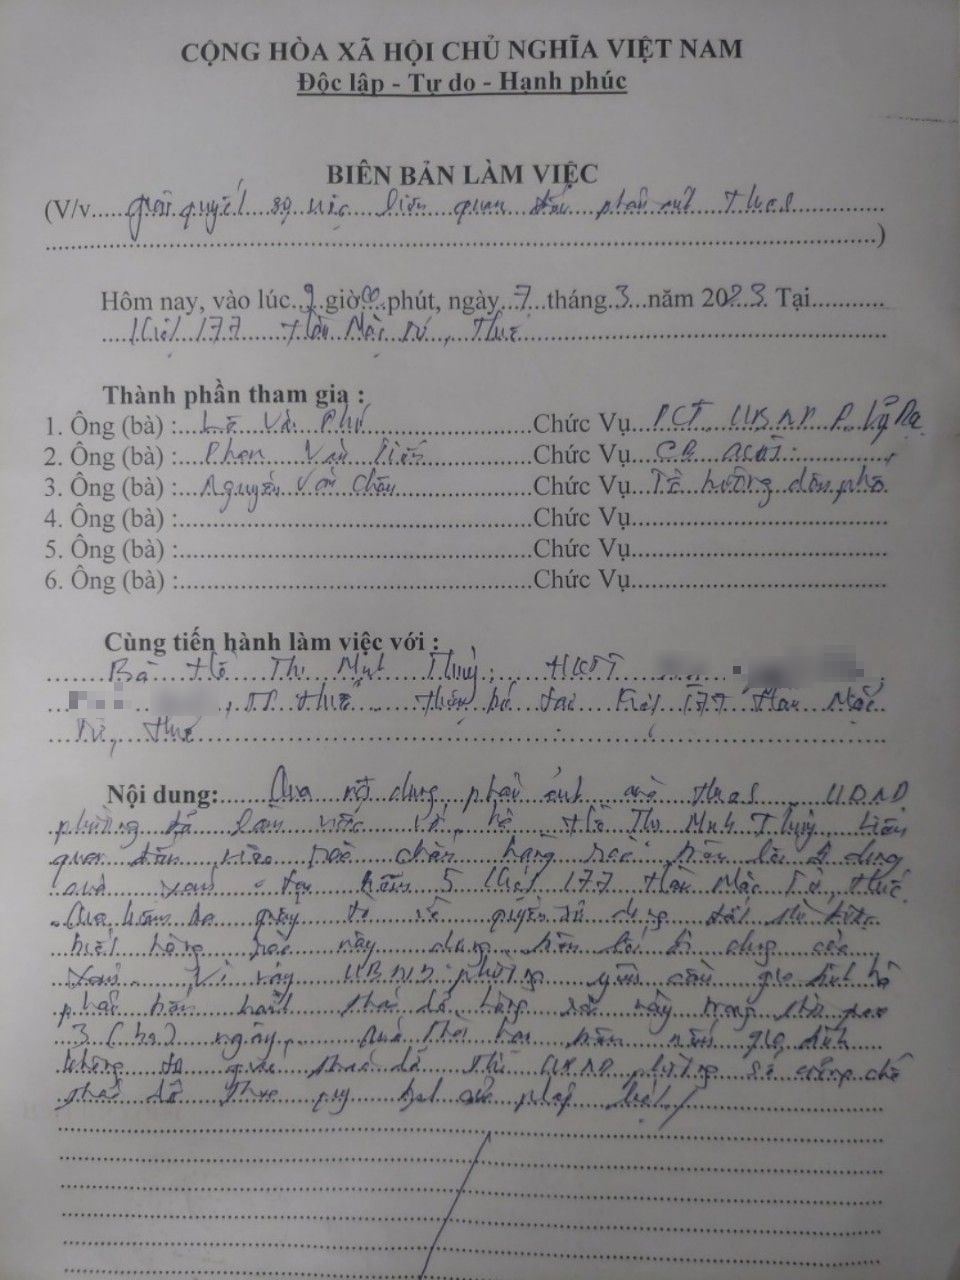 CỘNG HÒA XÃ HỘI CHỦ NGHĨA VIỆT NAM
Độc lập - Tự do - Hạnh phúc
BIÊN BẢN LÀM VIỆC
(V/v giải quyết sự việc liên quan đến phản ánh HueS
)
Hôm nay, vào lúc 9 giờ 00 phút, ngày 7 tháng 3 năm 2023 Tại
Kiệt 177 Hàn Mặc Tử, Huế
Thành phần tham gia :
1. Ông (bà) : Lê Văn Phú Chức Vụ PCT UBND P. Vỹ Dạ
2. Ông (bà) : Phan Văn Chức Vụ CB
3. Ông (bà) : Nguyễn Văn Chức Vụ Tổ trưởng dân phố
4. Ông (bà) : Chức Vụ
5. Ông (bà) : Chức Vụ
6. Ông (bà) : Chức Vụ
Cùng tiến hành làm việc với :
Bà Hồ Thị Minh Thuỷ; HKTT
, TP Huế tại Kiệt 177 Hàn Mặc
Tử, Huế
Nội dung: Qua nội dung phản ánh HueS UBND
phường đã làm việc với hộ Hồ Thị Minh Thuỷ liên
quan đến rào chắn hàng rào trên lối đi chung
của xóm 5 Kiệt 177 Hàn Mặc Tử, Huế.
Qua kiểm tra giấy tờ về quyền sử dụng đất thì được
biết hàng rào này dựng trên lối đi chung của
xóm. Vì vậy UBND phường yêu cầu gia đình bà
phải tháo dỡ hàng rào này trong thời gian
3 (ba) ngày, quá thời hạn trên nếu gia đình
không tháo dỡ thì UBND phường sẽ cưỡng chế
tháo dỡ theo quy định của pháp luật./